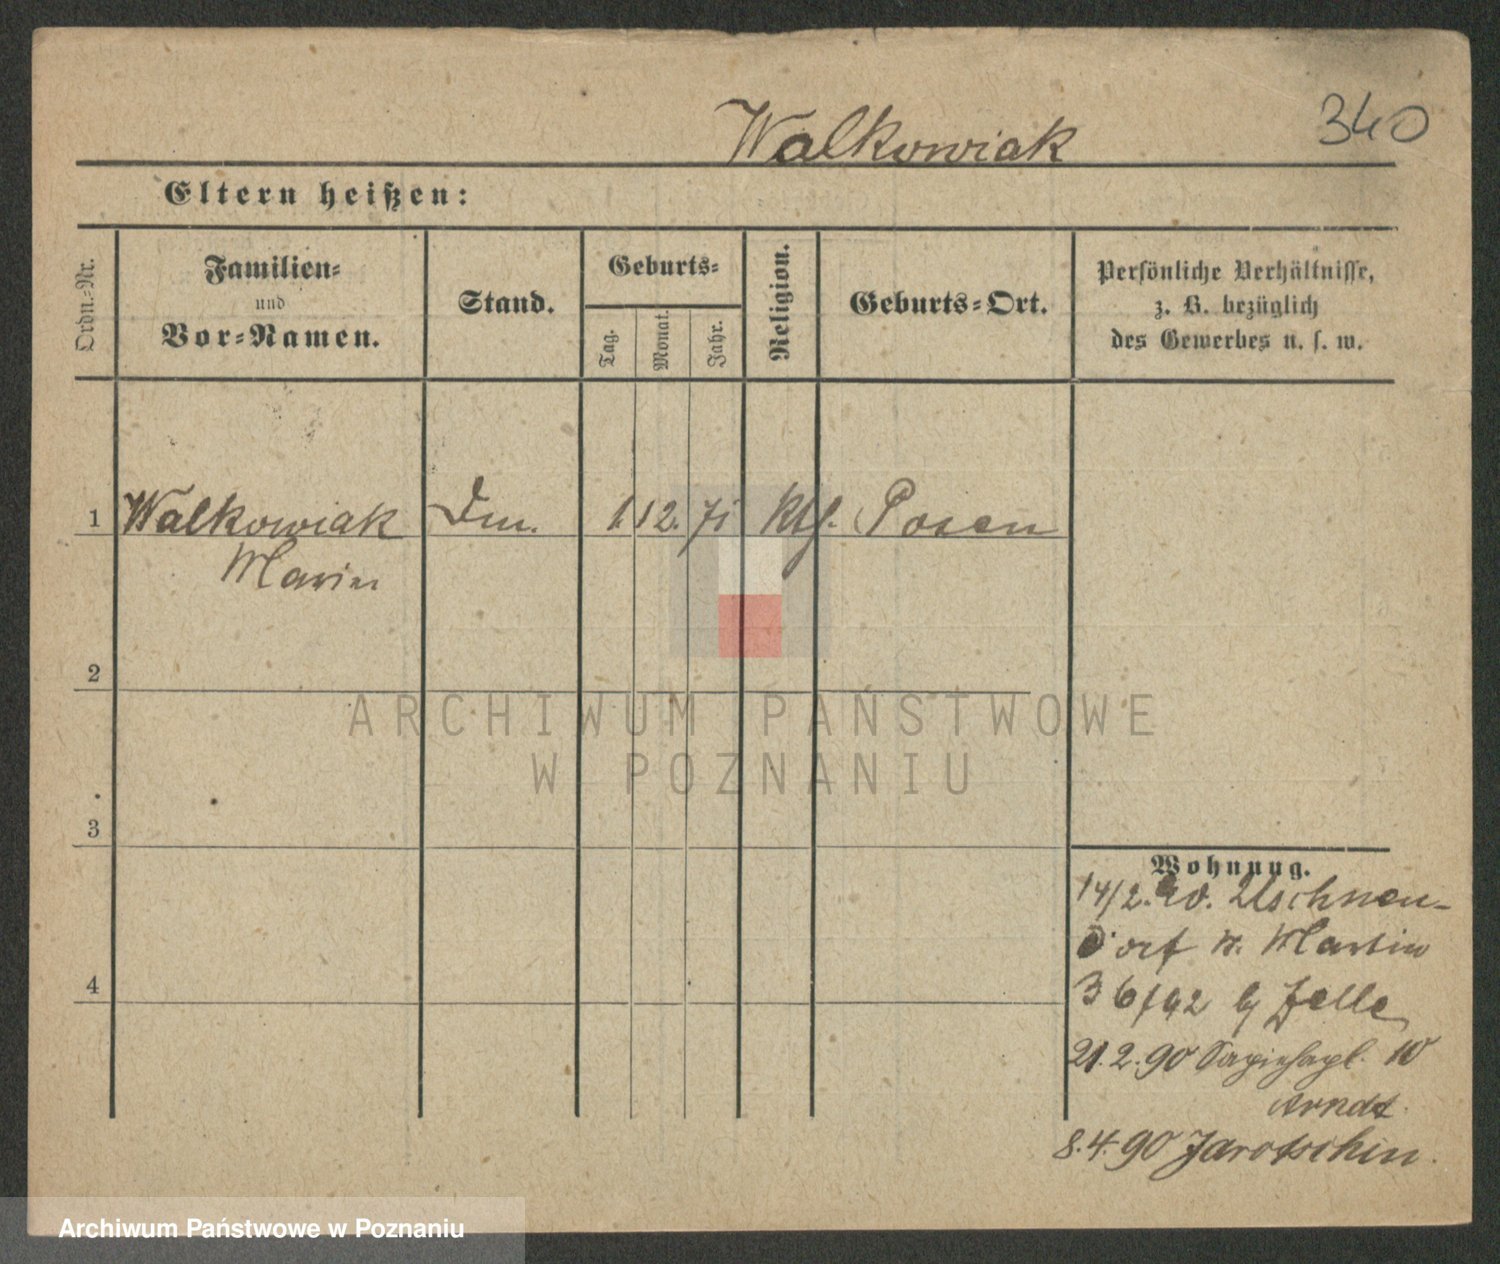 Walkowiak 340
Eltern heißen:
Ordn.-Nr.
Familien-
und
Vor-Namen.
Stand.
Geburts-
Tag.
Monat.
Jahr.
Religion.
Geburts-Ort.
Persönliche Verhältnisse,
z. B. bezüglich
des Gewerbes u. s. w.
1 Walkowiak 1 12. 71 Kth. Posen
Marie
2
ARCHIWUM PAŃSTWOWE
W POZNANIU
3
Wohnung.
14/2. 90.
dorf Martin
4
36/42 Zelle
21.2.90 10
Arndt.
8.4.90 Jarotschin.
Archiwum Państwowe w Poznaniu